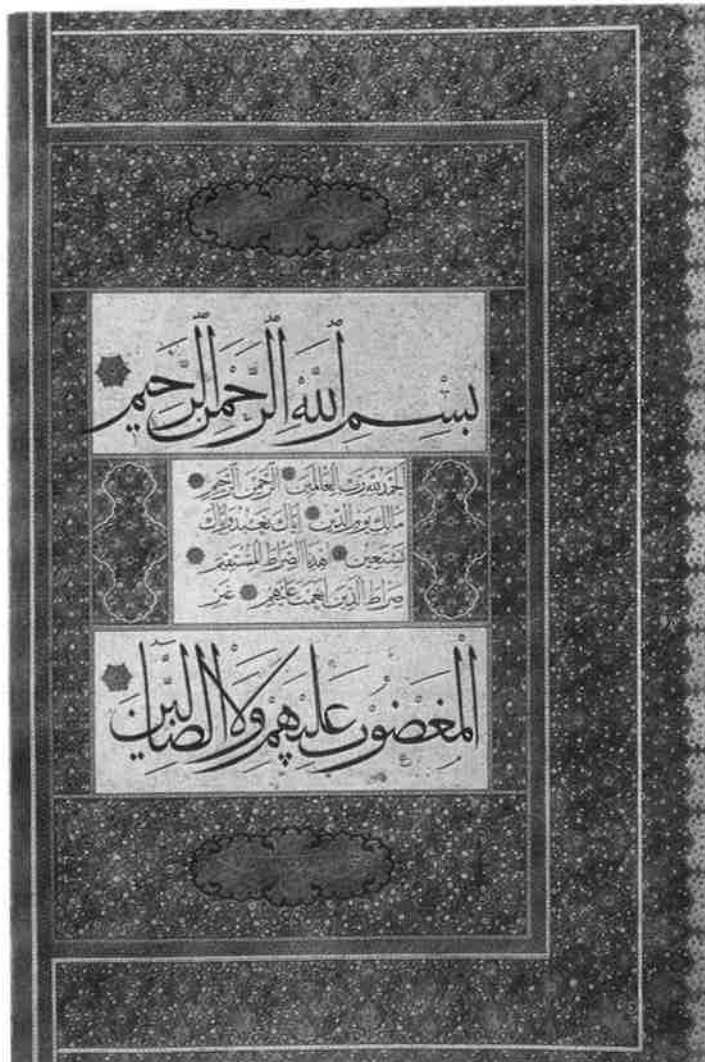 بِسْمِ ٱللَّهِ ٱلرَّحْمَنِ ٱلرَّحِيمِ
ٱلحَمْدُ لِلَّهِ رَبِّ ٱلعَالَمِينَ ٱلرَّحْمَنِ ٱلرَّحِيمِ
مَالِكِ يَوْمِ ٱلدِّينِ إِيَّاكَ نَعْبُدُ وَإِيَّاكَ
نَسْتَعِينُ ٱهْدِنَا ٱلصِّرَاطَ ٱلْمُسْتَقِيمَ
صِرَاطَ ٱلَّذِينَ أَنْعَمْتَ عَلَيْهِمْ غَيْرِ
ٱلْمَغْضُوبِ عَلَيْهِمْ وَلَا ٱلضَّالِّينَ